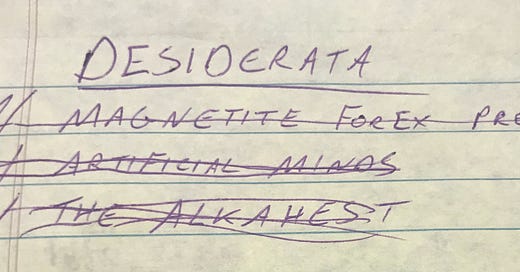 DESIDERATA
MAGNETITE FOREX PRE
ARTIFICIAL MINDS
THE ALKAHEST